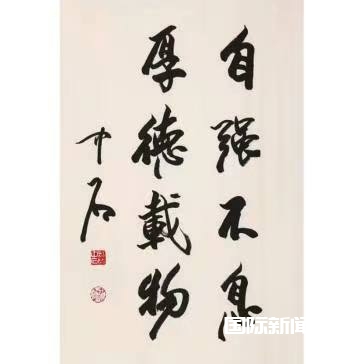 自强不息
厚德載物
中石
国际新闻